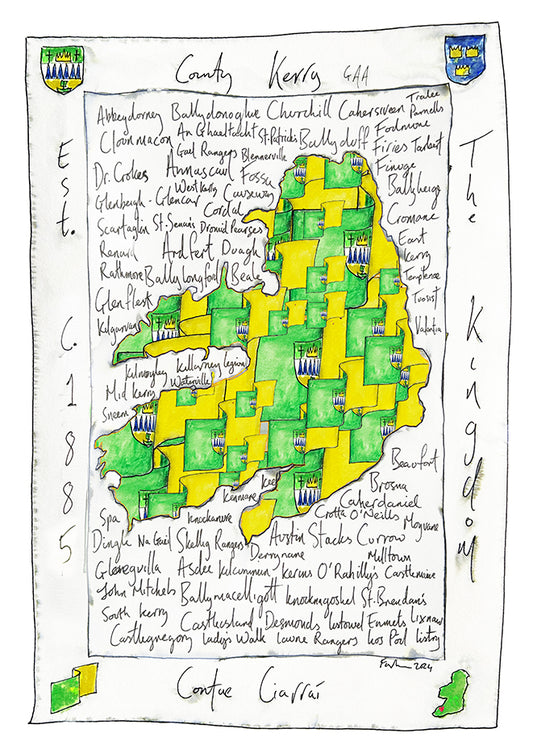 County Kerry GAA
Est. C. 1885
The Kingdom
Abbeydorney Ballydonoghue Churchill Cahersiveen Tralee Parnells
Clounmacon An Ghaeltacht St. Patricks Ballyduff Fodmore
Gael Rangers Blennerville Firies Tarbert
Dr. Crokes Annascaul Fossa Finuge
West Kerry Causeway Ballyheigue
Glenbeigh-Glencar Cordal Cromane
Scartaglin St. Senan's Dromid Pearses East
Renard Ardfert Duagh Kerry
Rathmore Ballylongford Beale Templenoe
Glenflesk Tuosist
Kilgarvan Valentia
Kilmoyley Killarney Legion
Mid Kerry Waterville
Sneem
Beaufort
Kenmare Keel Brosna
Caherdaniel
Spa Knockanure Crotta O'Neills Moyvane
Dingle Na Gaeil Skellig Rangers Austin Stacks Currow
Derrynane Milltown
Gleneguilla Asdee Kilcummin Kerins O'Rahilly's Castlemaine
John Mitchels Ballymacelligott Knocknagoshel St. Brendan's
South Kerry Castleisland Desmonds Listowel Emmets Lixnaw
Castlegregory Lady's Walk Laune Rangers Lios Póil Listry
2024
Contae Ciarraí